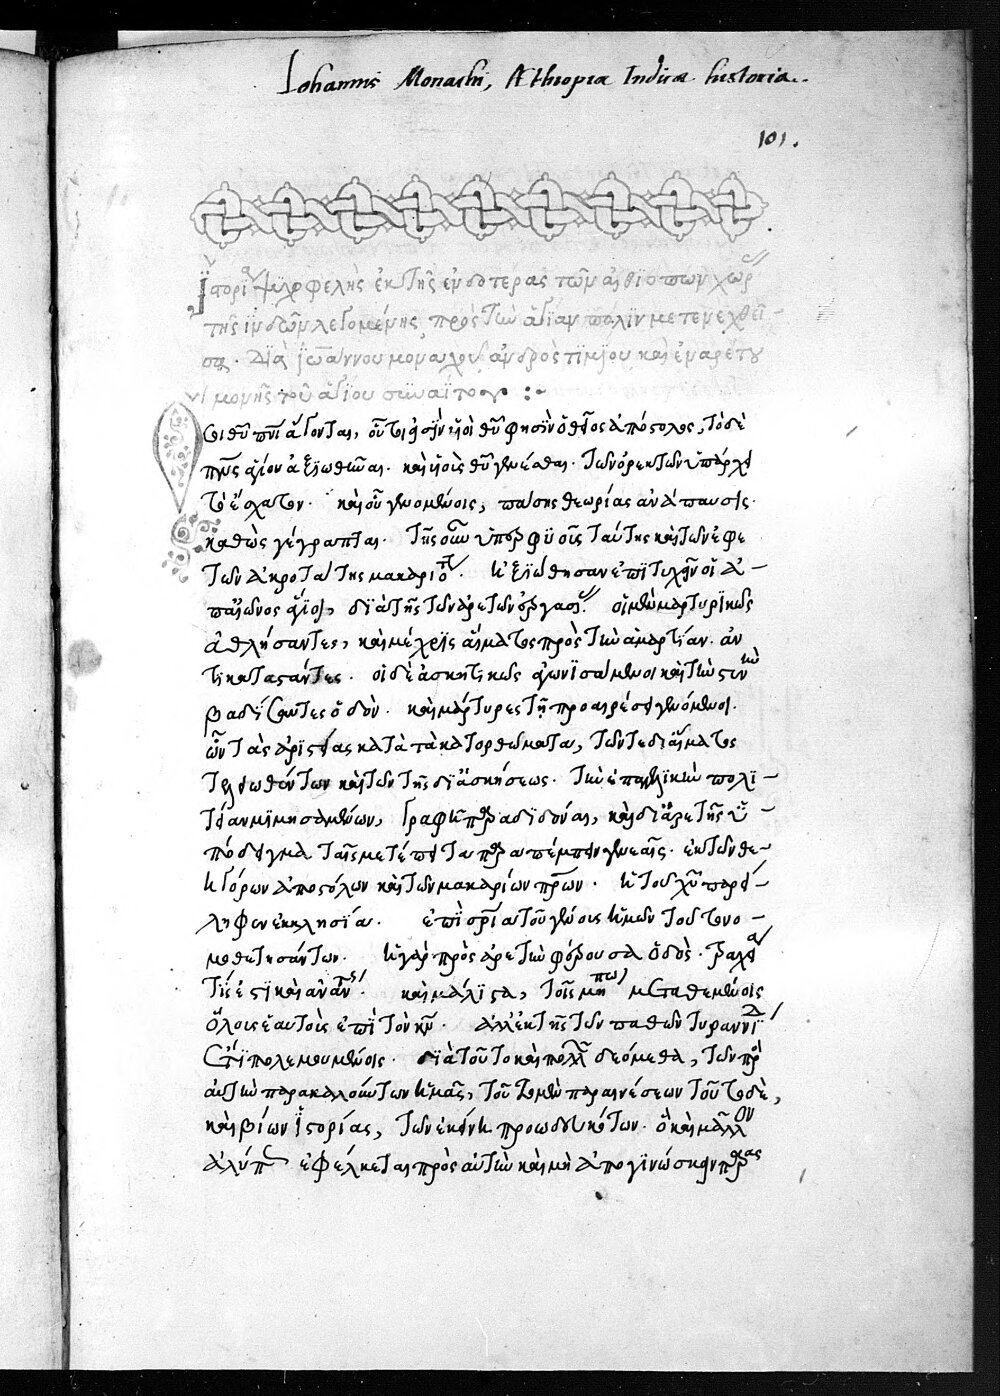 Johannis Monachi, Æthiopiæ Indicæ historia..
101.
Ἱστορία ψυχωφελὴς ἐκ τῆς ἐνδοτέρας τῶν αἰθιόπων χώρ
τῆς ἰνδῶν λεγομένης πρὸς τὴν ἁγίαν πόλιν μετενεχθεῖ-
σα. διὰ ἰωάννου μοναχοῦ ἀνδρὸς τιμίου καὶ ἐναρέτου
μονῆς τοῦ ἁγίου
Ὅσοι θῦ πνι ἄγονται, οὗτοί εἰσιν υἱοὶ θῦ φησὶν ὁ θεῖος ἀπόστολος, τὸ δὲ
πνς ἁγίου ἀξιωθῆναι. καὶ υἱοὺς θῦ γενέσθαι. τῶν ὀρεκτῶν ὑπάρχει
τὸ ἔσχατον. καὶ οὗ γενομένοις, πάσης θεωρίας ἀνάπαυσις.
καθὼς γέγραπται. τῆς οὖν ὑπερφυοῦς ταύτης καὶ τῶν ἐφε
τῶν ἀκροτάτης μακαριότ. ἠξιώθησαν ἐπιτυχεῖν οἱ ἀ-
παἰῶνος ἅγιοι, διὰ τῆς τῶν ἀρετῶν ἐργασί. οἱ μὲν μαρτυρικῶς
ἀθλήσαντες, καὶ μέχρις αἵματος πρὸς τὴν ἁμαρτίαν. ἀν
τικαταστάντες. οἱ δὲ ἀσκητικῶς ἀγωνισάμενοι καὶ τὴν στενὴν
βαδίσαντες ὁδὸν. καὶ μάρτυρες τῇ προαιρέσει γενόμενοι.
ὧν τὰς ἀριστείας κατὰ τὰ κατορθώματα, τῶν τε δι αἵματος
τελειωθέντων καὶ τῶν τῆς δι ἀσκήσεως. τὴν ἐπαγγελικὴν πολι-
τείαν μιμησαμένων, γραφῇ παραδιδόναι, καὶ δι ἀρετῆς ὑ-
πόδειγμα ταῖς μετέπειτα παραπέμπειν γενεαῖς. ἐκ τῶν θε-
ηγόρων ἀποστόλων καὶ τῶν μακαρίων πρων. ἡ τοῦ χῦ παρεί-
ληφεν ἐκκλησία. ἐπὶ σρία τοῦ γένους ἡμῶν τοῦτο νο-
μοθετησάντων. ἡ γὰρ πρὸς ἀρετὴν φέρουσα ὁδὸς. τραχεῖα
τίς ἐστι καὶ ἀνάντ. καὶ μάλιστα, τοῖς μήπω μεταθεμένοις
ὅλους ἑαυτοὺς ἐπὶ τὸν κν. ἀλλ ἐκ τῆς τῶν παθῶν τυραννίδ
ἔτι πολεμουμένοις. διὰ τοῦτο καὶ πολλῶν δεόμεθα, τῶν πρὸς
αὐτὴν παρακαλούντων ἡμᾶς, τοῦτο μὲν παραινέσεων τοῦτο δὲ,
καὶ βίων ἱστορίας, τῶν ἐκείνῃ προωδευκότων. ὃ καὶ μᾶλλον
ἀλύπως ἐφέλκεται πρὸς αὐτὴν καὶ μὴ ἀπογινώσκειν παρας